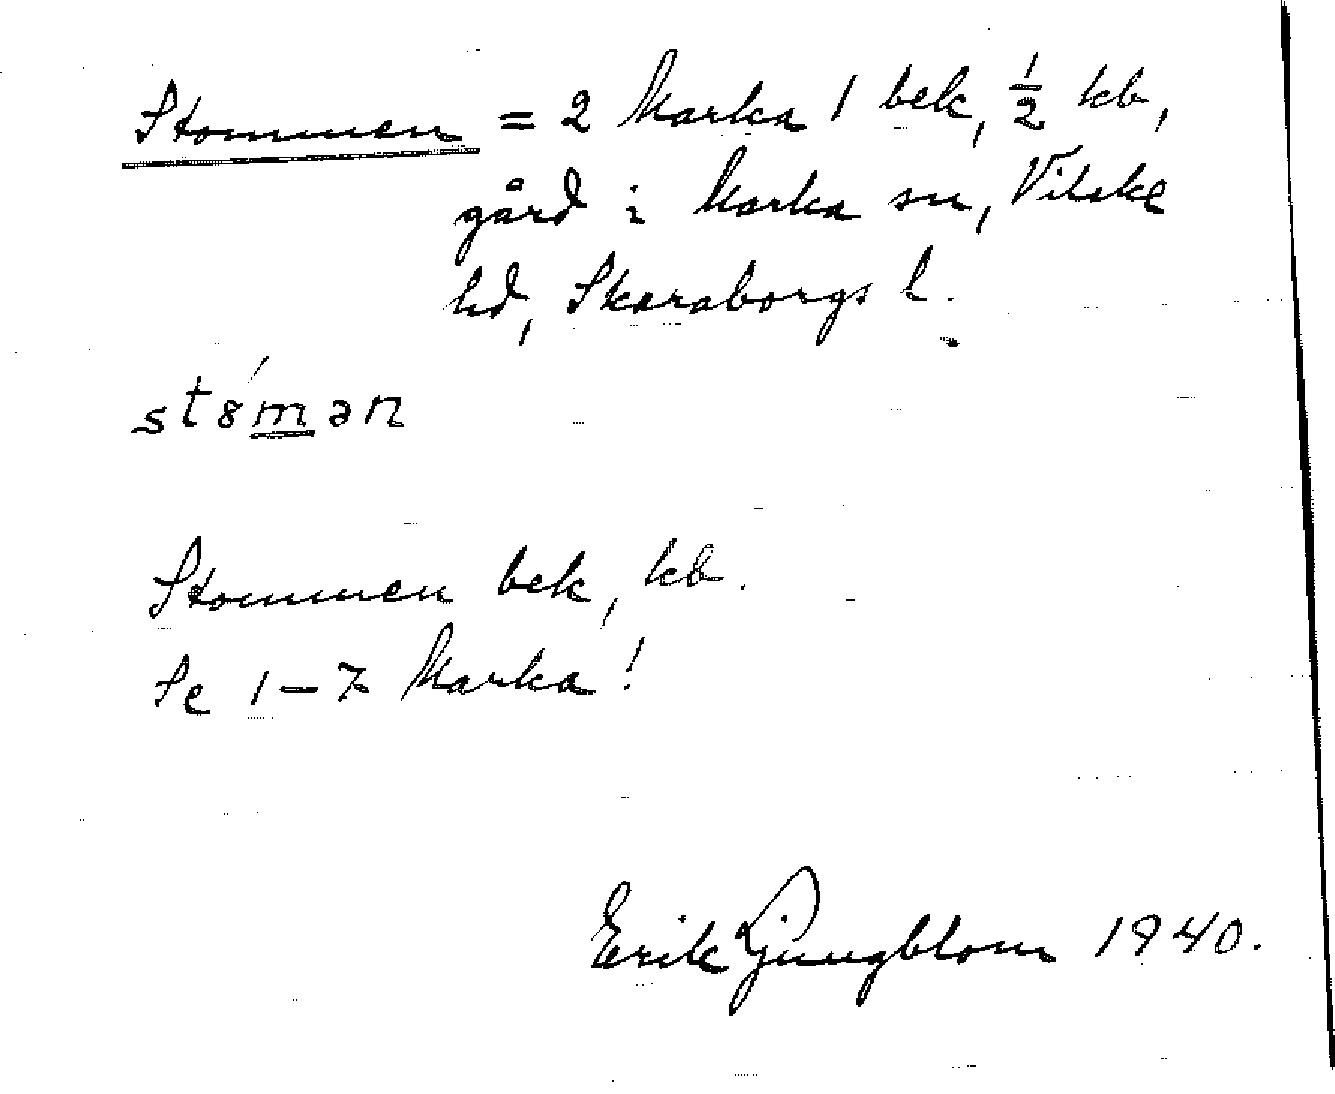 Stommen = 2 Marka 1 bek, 1/2 kb,
gård i Marka sn, Vilske
hd, Skaraborgs l.
st8́mən
Stommen bek, kb.
Se 1–7 Marka!
Erik Ljungblom 1940.